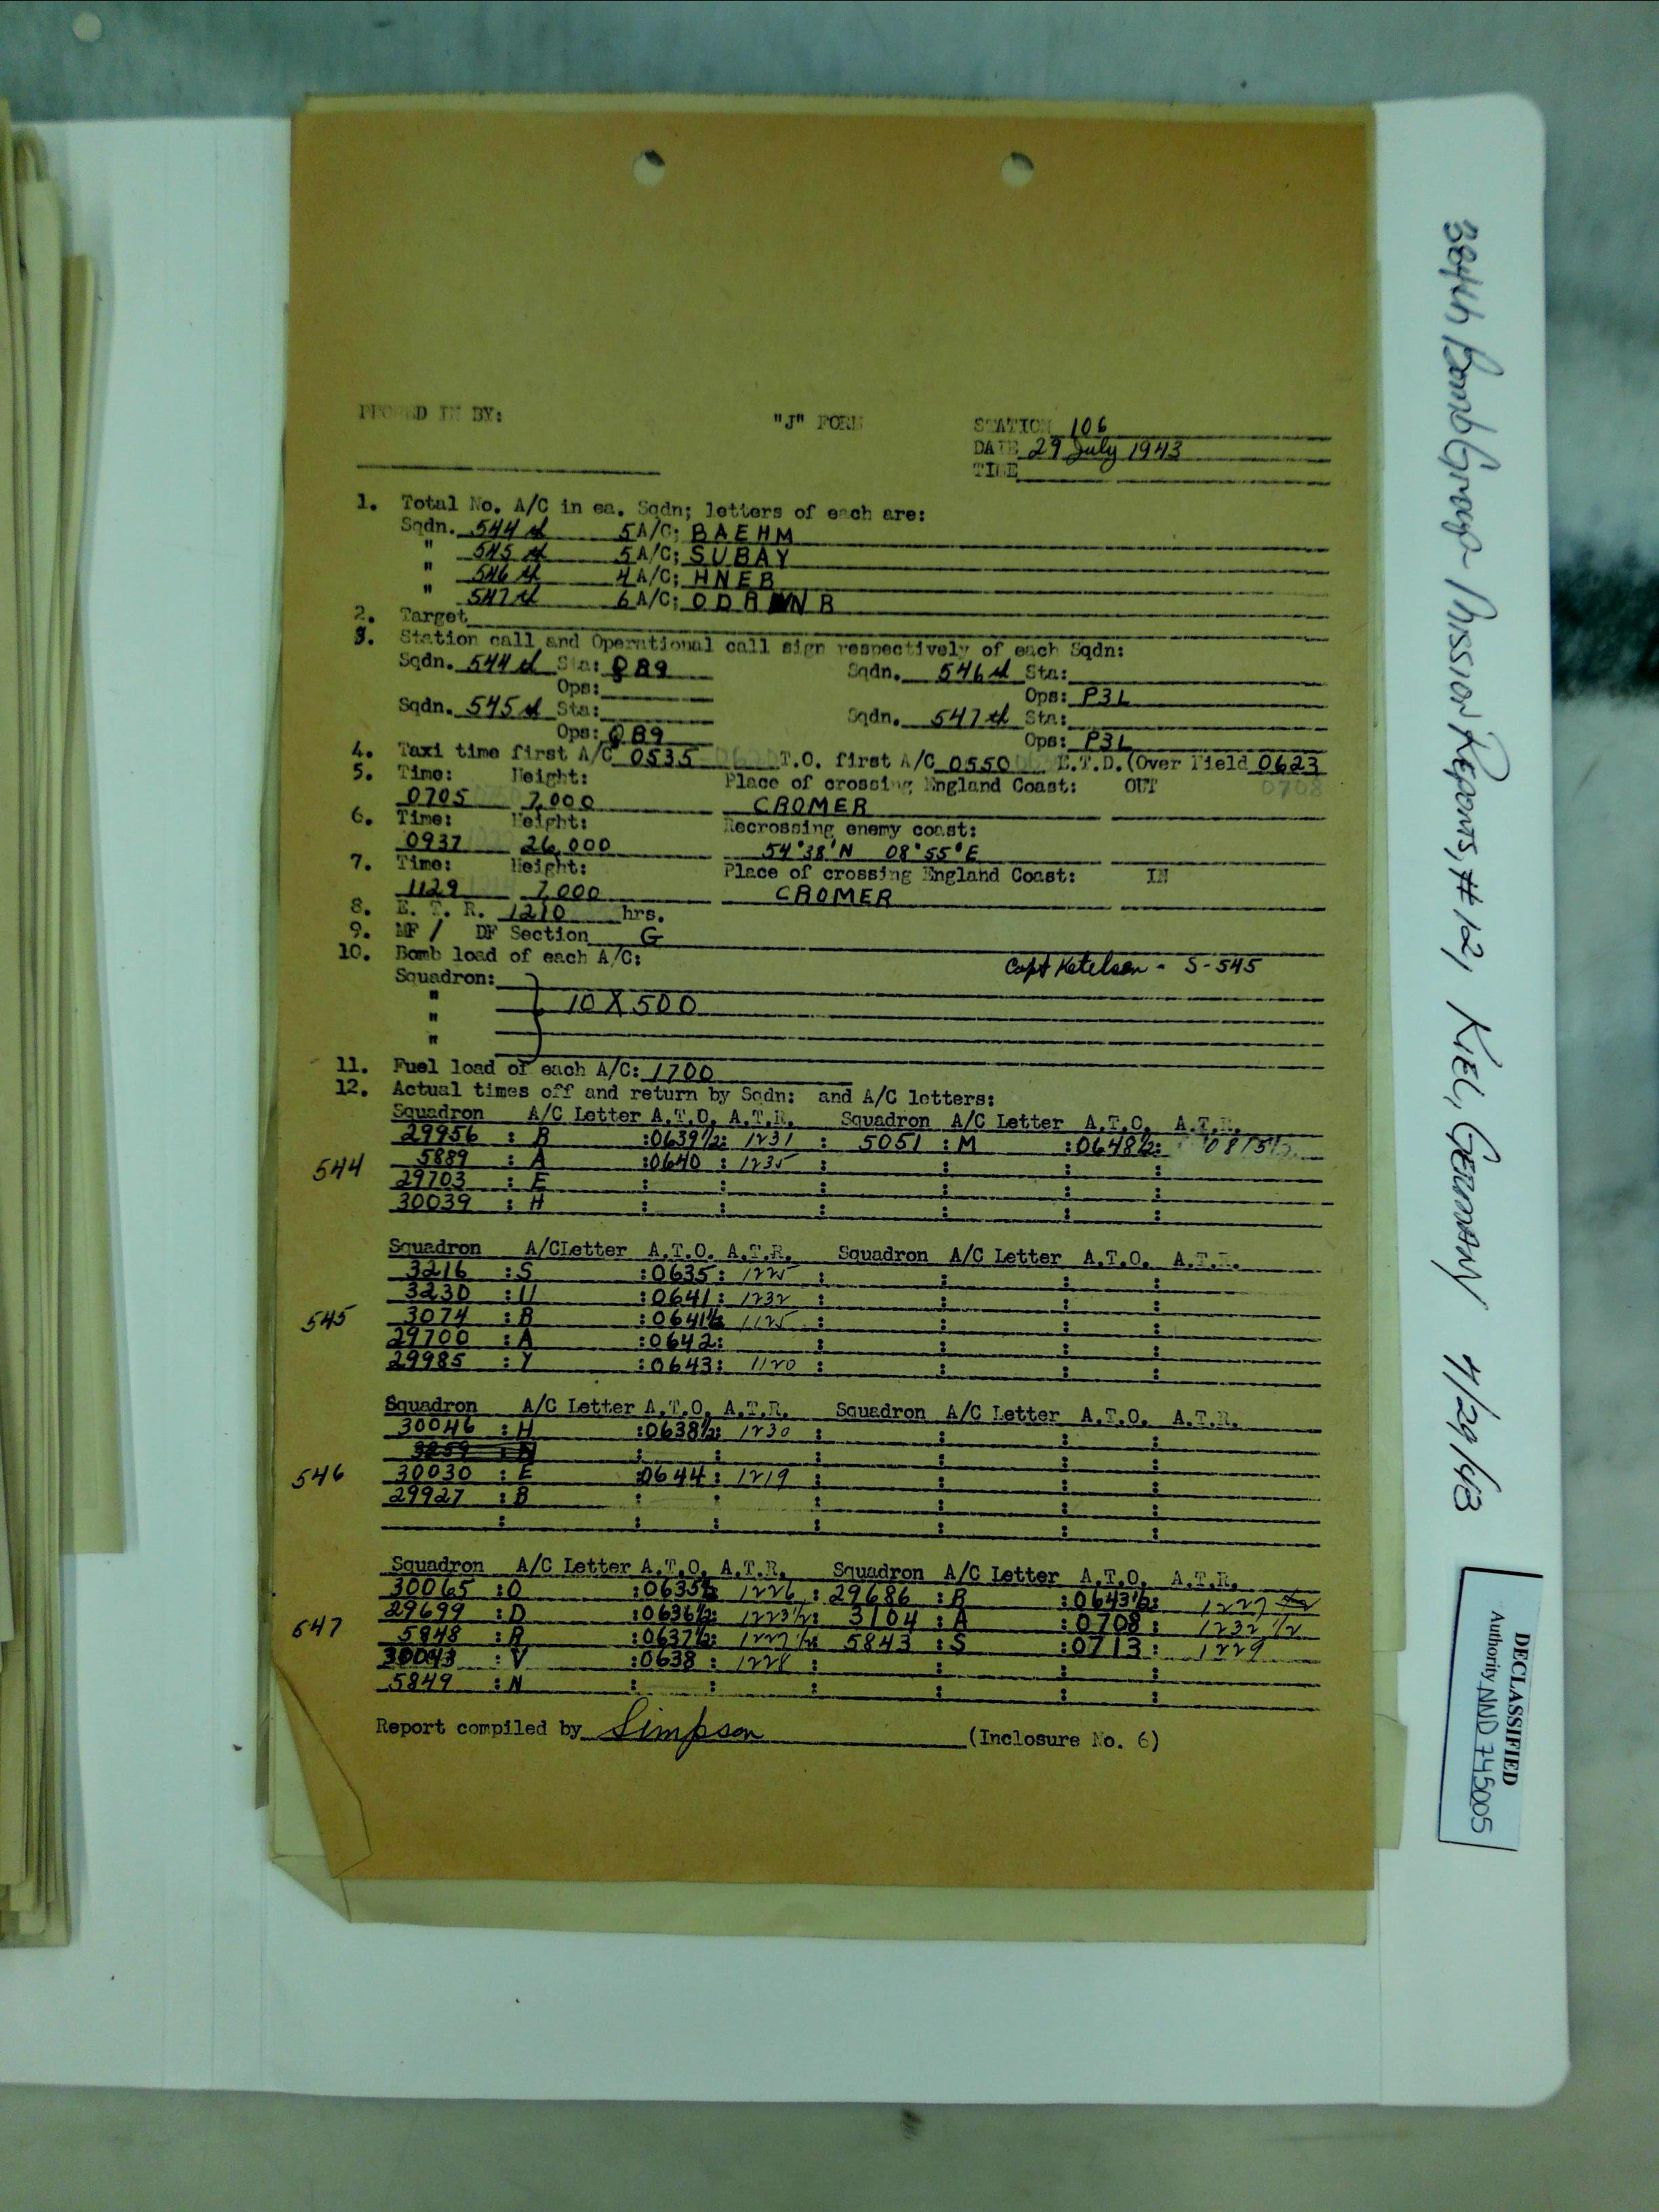 PHONED IN BY:
"J" FORM
STATION 106
DATE 29 July 1943
TIME
1. Total No. A/C in ea. Sqdn; letters of each are:
Sqdn. 544th 5 A/C; BAEHM
" 545th 5 A/C; SUBAY
" 546th 4 A/C; HNEB
" 547th 6 A/C; ODR VNB
2. Target
3. Station call and Operational call sign respectively of each Sqdn:
Sqdn. 544th Sta: QB9 Sqdn. 546th Sta:
Ops: Ops: P3L
Sqdn. 545th Sta: Sqdn. 547th Sta:
Ops: QB9 Ops: P3L
4. Taxi time first A/C 0535 T.O. first A/C 0550 E.T.D. (Over Field 0623
5. Time: Height: Place of crossing England Coast: OUT 0708
0705 7,000 CROMER
6. Time: Height: Recrossing enemy coast:
0937 26,000 54°38'N 08°55'E
7. Time: Height: Place of crossing England Coast: IN
1129 7,000 CROMER
8. E. T. R. 1210 hrs.
9. MF / DF Section G
10. Bomb load of each A/C:
Capt Ketelsen - S-545
Squadron:
" 10 X 500
"
"
11. Fuel load of each A/C: 1700
12. Actual times off and return by Sqdn: and A/C letters:
Squadron A/C Letter A.T.O. A.T.R. Squadron A/C Letter A.T.O. A.T.R.
29956 : B :0639½: 1231 : 5051 : M :0648½: 0815½
544 5889 : A :0640 : 1235 :
29703 : E
30039 : H
Squadron A/CLetter A.T.O. A.T.R. Squadron A/C Letter A.T.O. A.T.R.
3216 : S :0635: 1225 :
3230 : U :0641: 1232 :
545 3074 : B :0641½ 1125 :
29700 : A :0642:
29985 : Y :0643: 1120 :
Squadron A/C Letter A.T.O. A.T.R. Squadron A/C Letter A.T.O. A.T.R.
30046 : H :0638½: 1230 :
3259 : N
546 30030 : E :0644: 1219 :
29927 : B
Squadron A/C Letter A.T.O. A.T.R. Squadron A/C Letter A.T.O. A.T.R.
30065 : O :0635½ 1226 : 29686 : B :0643½: 1227
29699 : D :0636½: 1223½: 3104 : A :0708: 1232 1/2
547 5848 : R :0637½: 1227½: 5843 : S :0713: 1229
30043 : V :0638 : 1228 :
5849 : N
Report compiled by Simpson (Inclosure No. 6)
384th Bomb Group - Mission Reports, #12, KIEL, GERMANY 7/29/43
DECLASSIFIED
Authority NND 745005